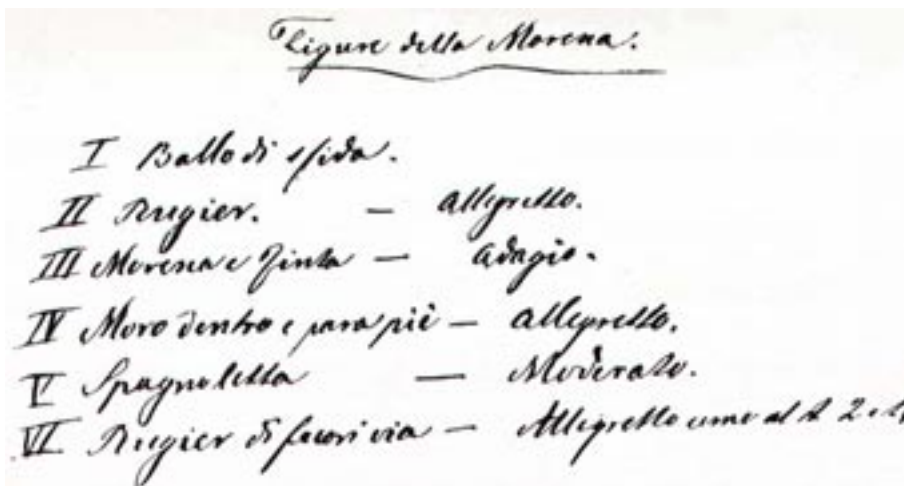 Figure della Morena.
I Ballo di sfida.
II Rugier. — Allegretto.
III Morena e finta — Adagio.
IV Moro dentro e para piè — Allegretto.
V Spagnoletta — Moderato.
VI Rugier di fuori via — Allegretto come al 2 e